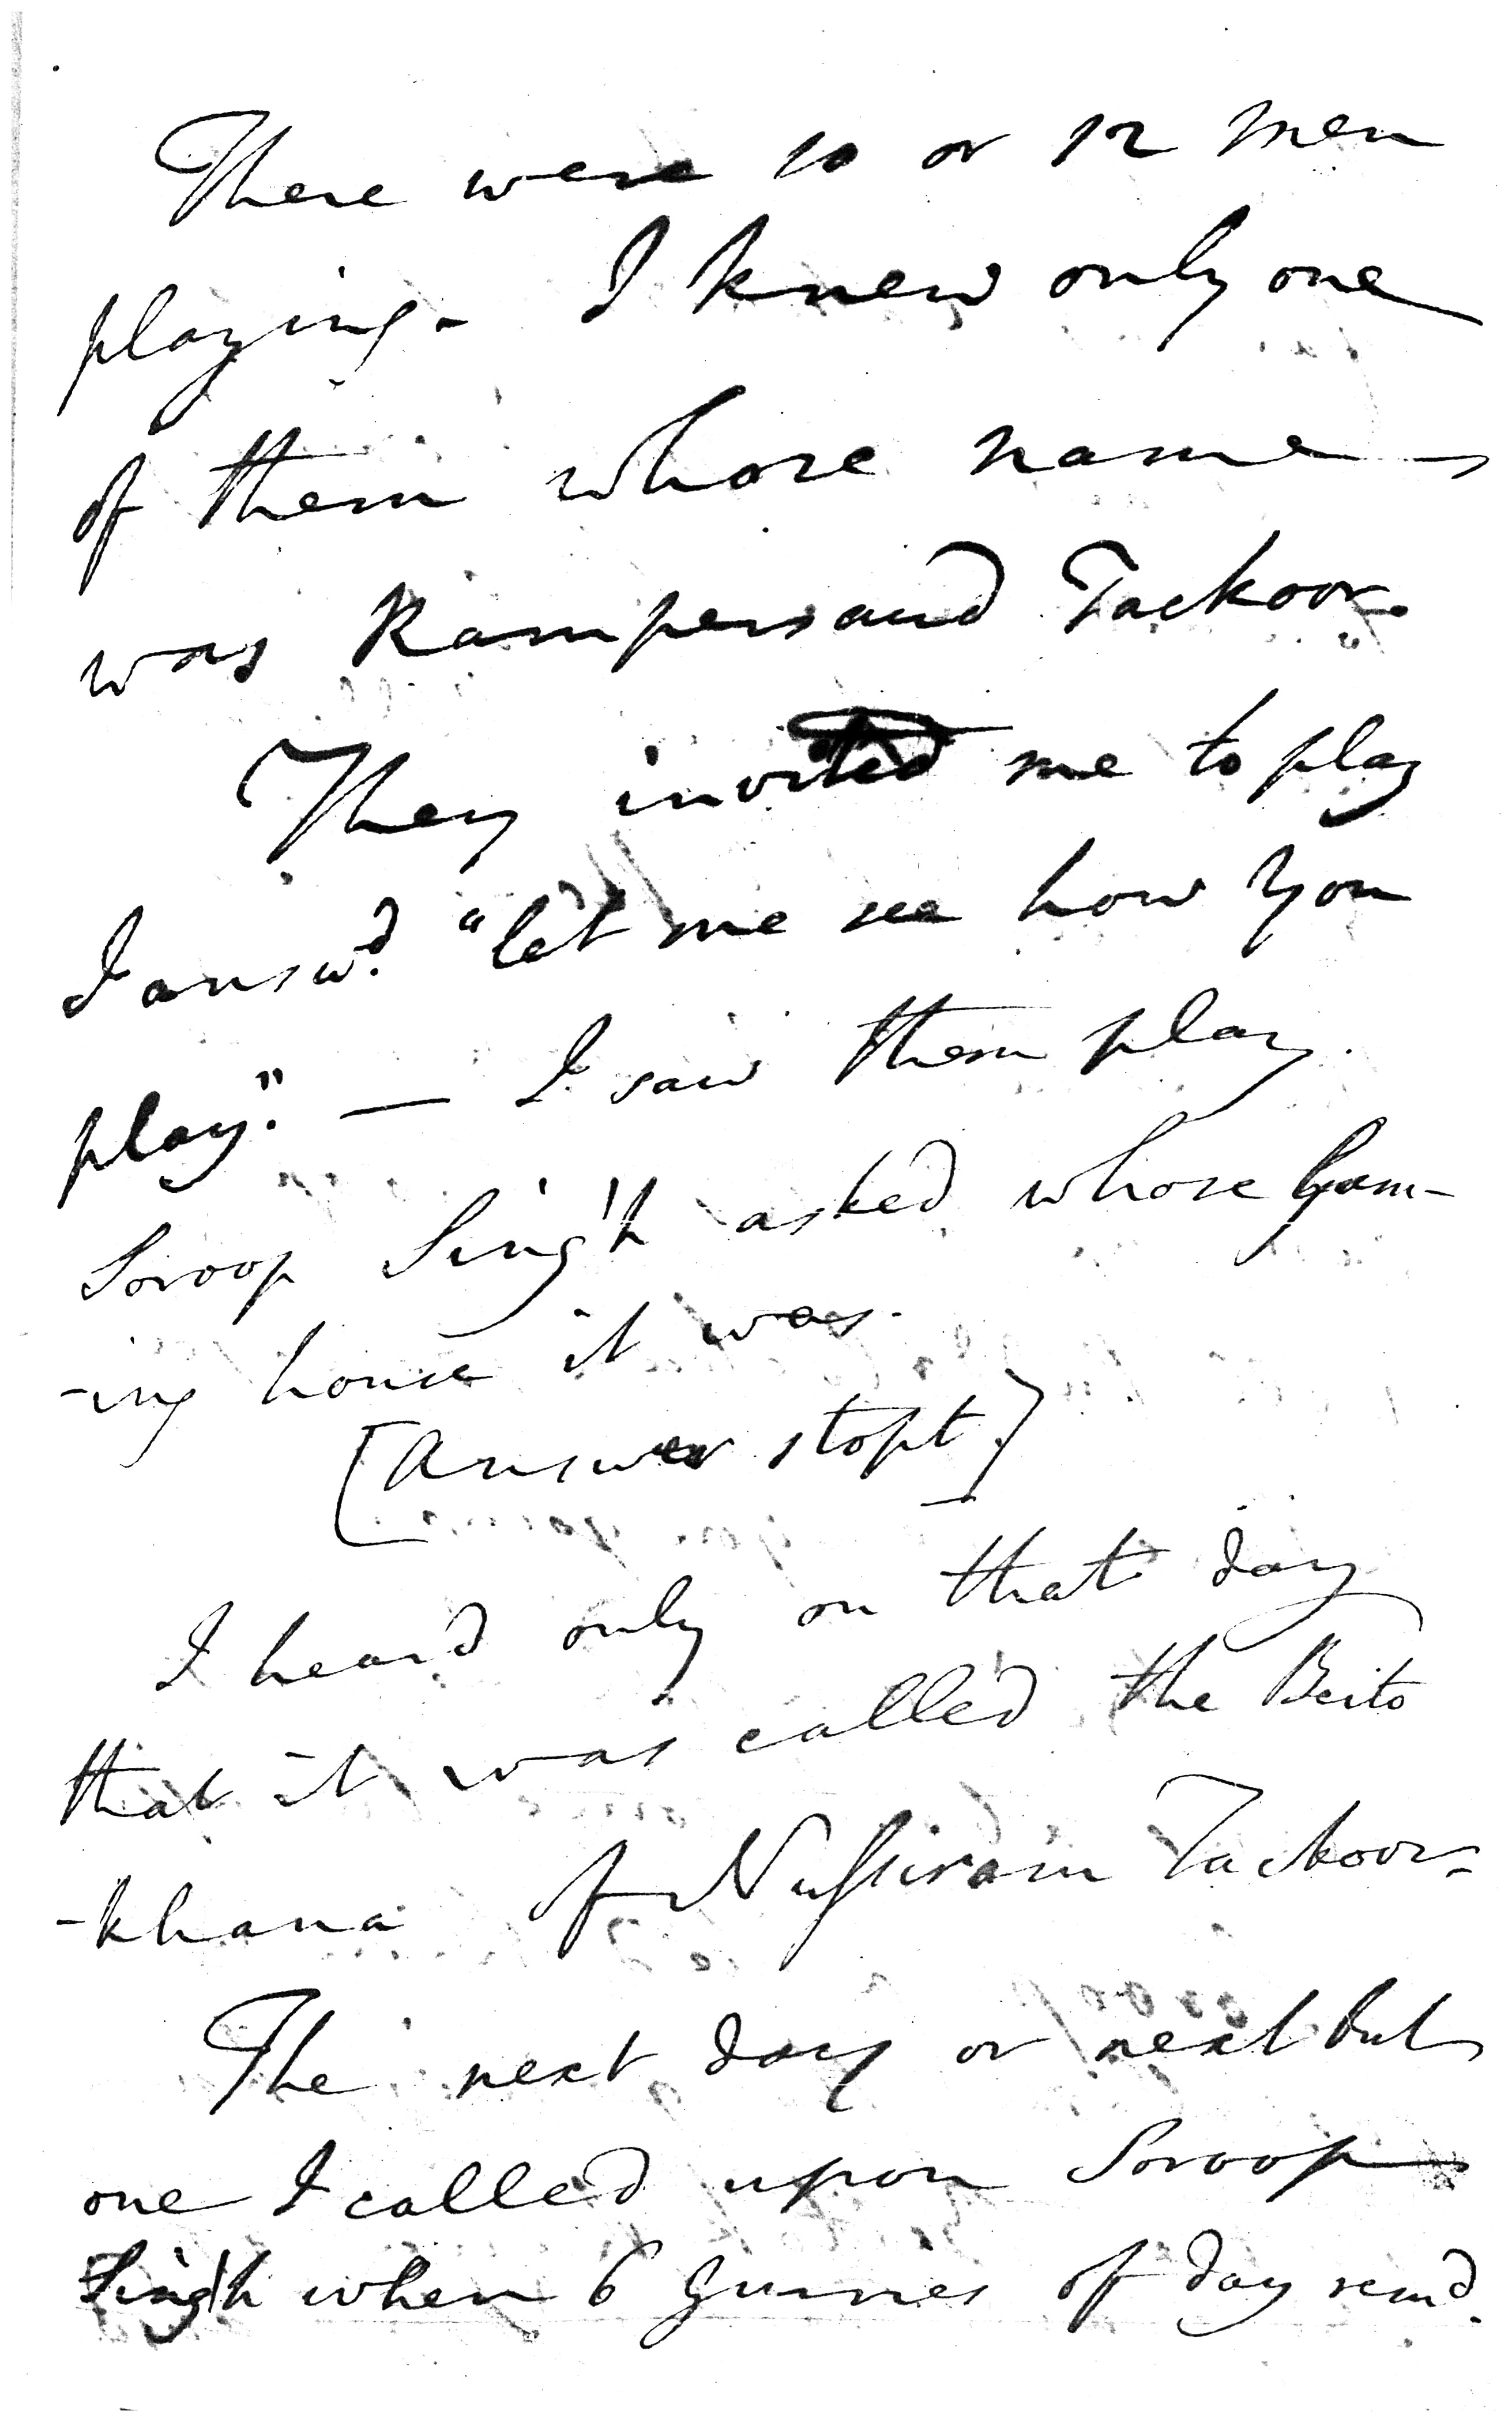 There were 10 or 12 men
playing - I knew only one
of them whose name
was Rampersaud Tackoor.
They invited me to play
I answd. "let me see how you
play." — I saw them play.
Soroop Sing'h asked whose Gam-
-ing house it was.
[Answer stopt]
I heard only on that day
that it was called the Beito
-khana of Nussiram Tackoor-
The next day or next but
one I called upon Soroop
Sing'h when 6 Gurries of day remd.